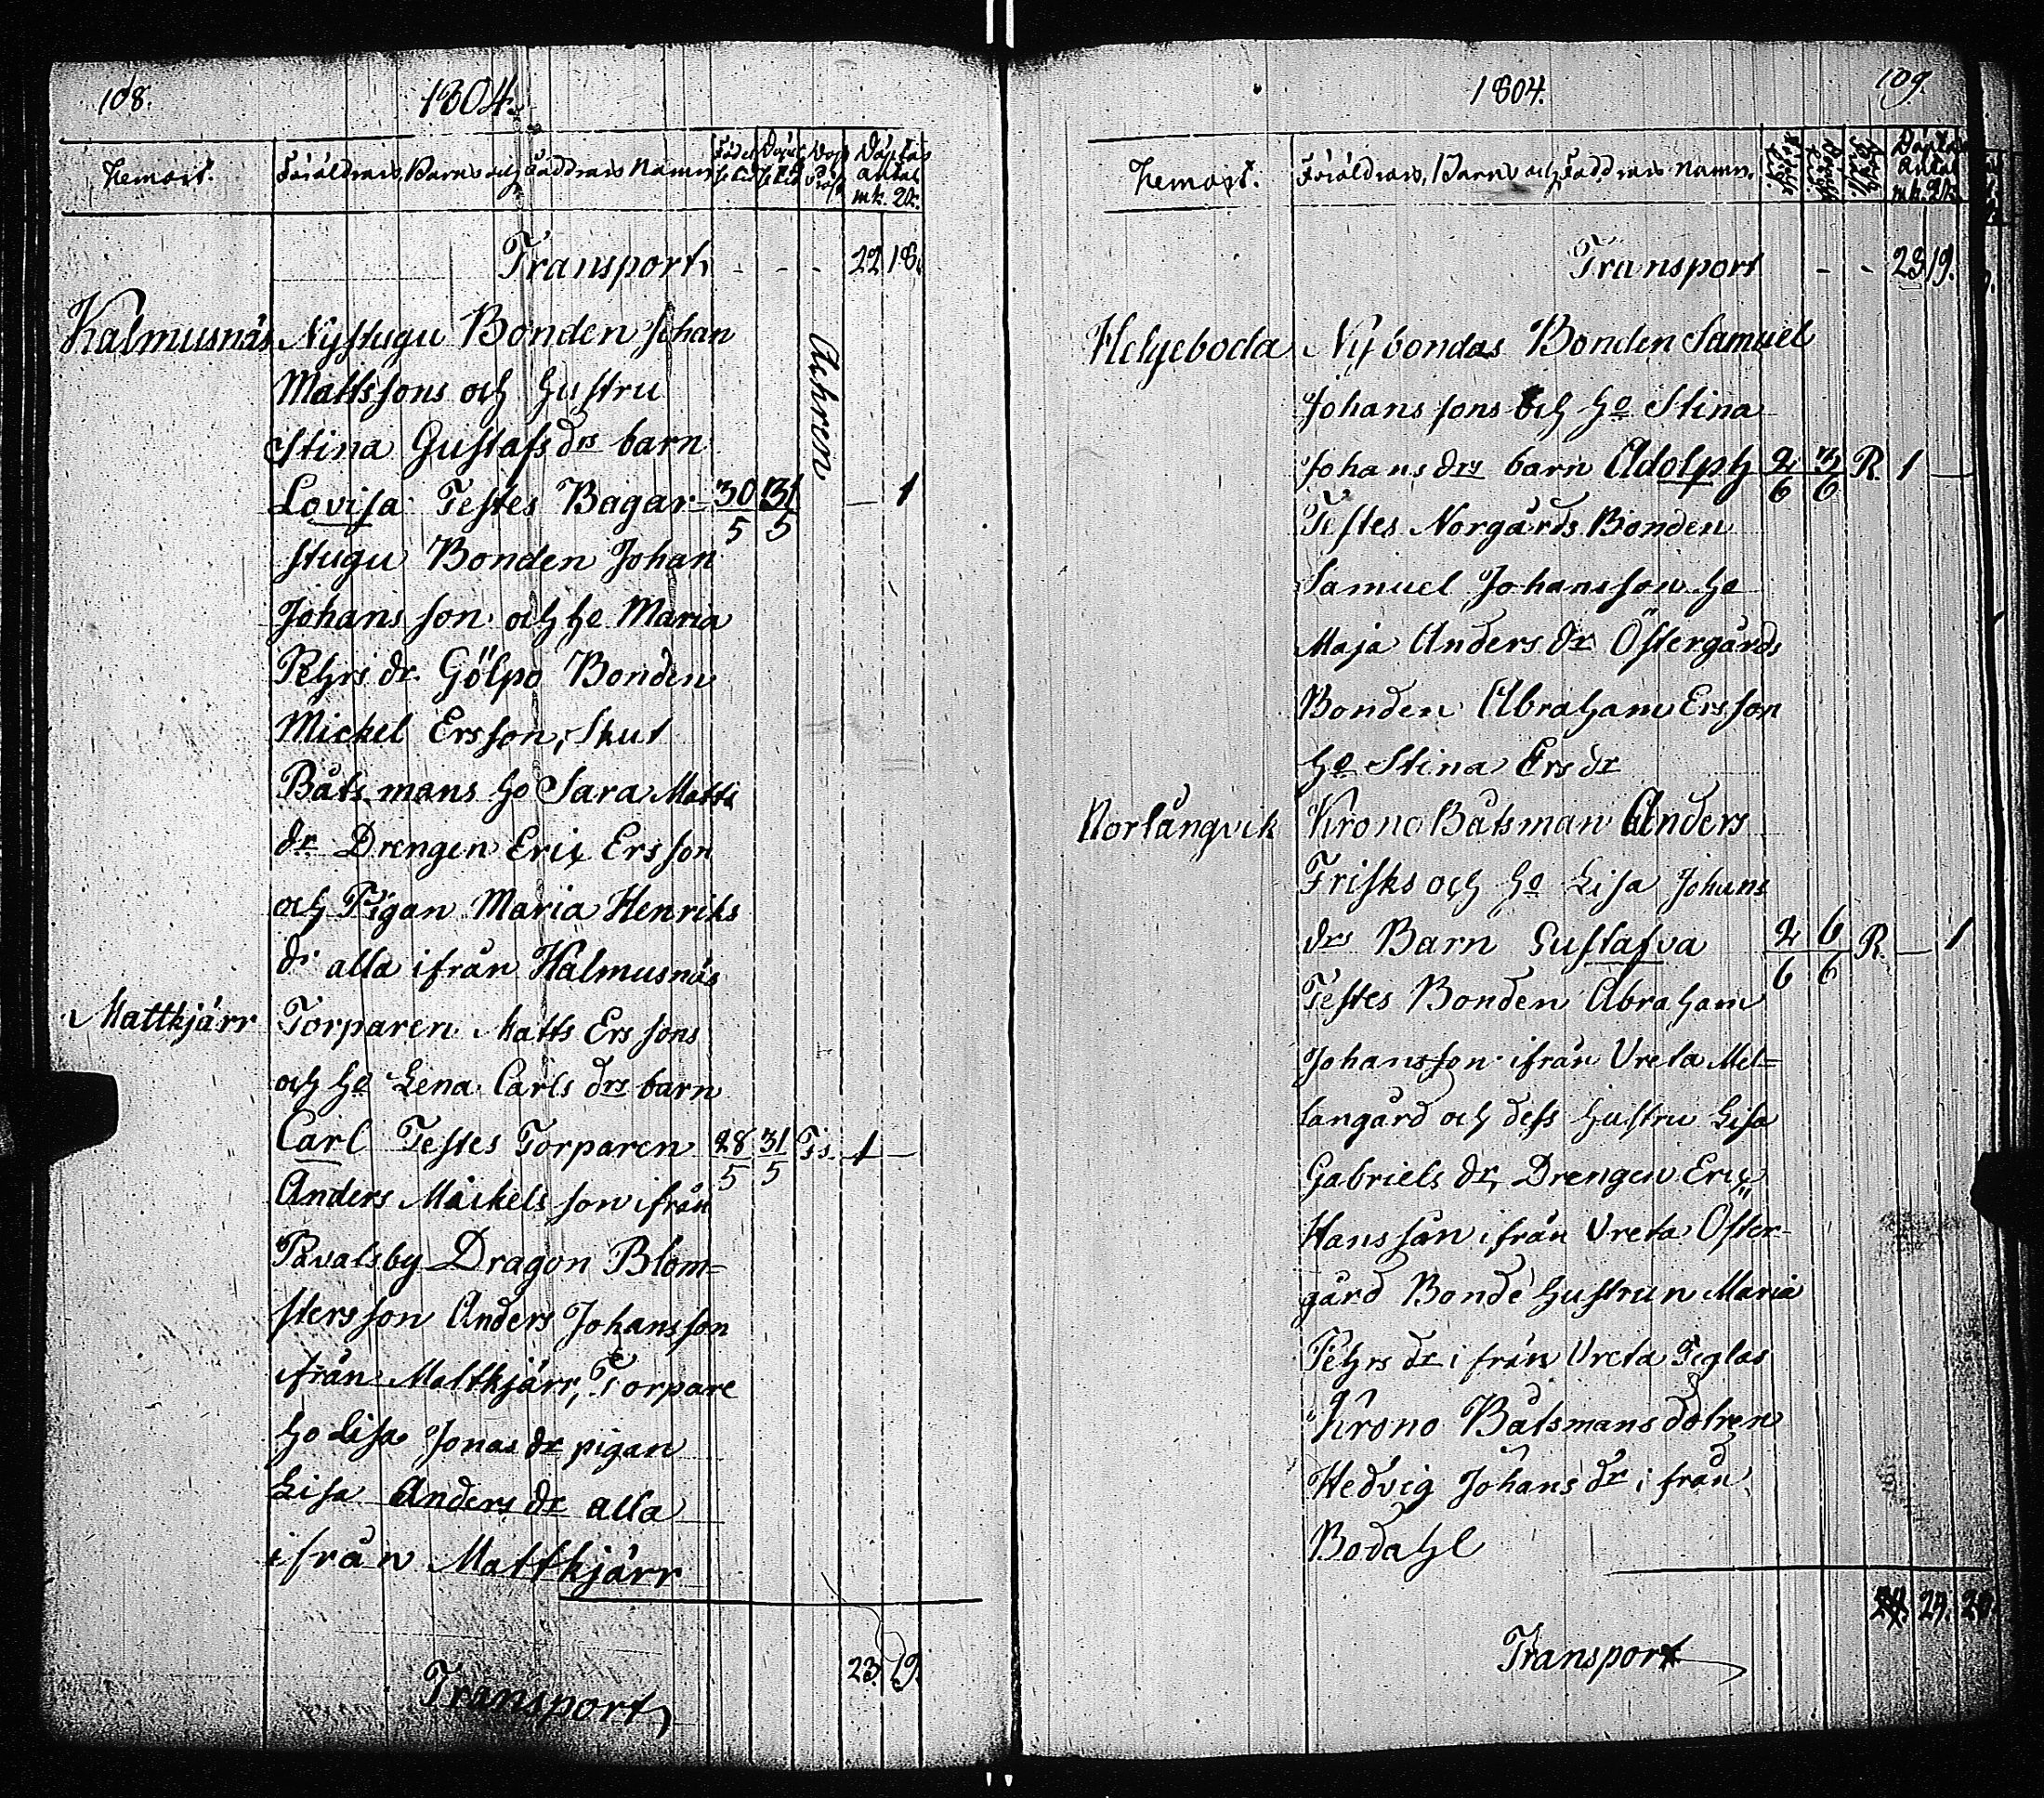 108.
1804.
Hemort.
Föräldrars, Barns och Faddrars Namn
Födelsetid
Döpelsetid
Döptas antal
mk. qk.
Transport - - - 22 18.
Kalmusnäs Nystugu Bonden Johan
Mattssons och Hustru
Stina Gustafs drs barn
Lovisa Testes Bagar- 30/5 31/5 Åhren — 1
stugu Bonden Johan
Johansson och ho Maria
Pehrs dr. Gölpo Bonden
Mickel Ersson, Skut
Båtsmans ho Sara Matts
dr Drengen Eric Ersson
och Pigan Maria Henriks
dr alla ifrån Kalmusnäs
Mattkjärr Torparen Matts Erssons
och ho Lena Carls drs barn
Carl Testes Torparen 28/5 31/5 Ts. 1 —
Anders Mickelsson ifrån
Påvalsby Dragon Blom=
stersson Anders Johansson
ifrån Mattkjärr, Torpare
ho Lisa Jonas dr pigan
Lisa Anders dr alla
ifrån Mattkjärr
23. 19.
Transport
1804.
109.
Hemort. Föräldrars, Barns och Faddrars namn.
Döptas Antal
mk. qk.
Transport - - 23 19.
Helgeboda Nybondas Bonden Samuel
Johanssons och ho Stina
Johans drs barn Adolph 2/6 3/6 R. 1 —
Testes Norgårds Bonden
Samuel Johansson ho
Maja Anders dr Östergårds
Bonden Abraham Ersson
ho Stina Ers dr
Norlångvik Krono Båtsman Anders
Frisks och ho Lisa Johans
drs Barn Gustafva 2/6 6/6 R. — 1
Testes Bonden Abraham
Johansson ifrån Vreta Mel=
langård och dess hustru Lisa
Gabriels dr, Drengen Eric
Hansson ifrån Vreta Öster-
gård Bonde hustrun Maria
Pehrs dr ifrån Vreta Teglas
Krono Båtsmans dotren
Hedvig Johans dr ifrån
Bodahl
24. 20.
Transport